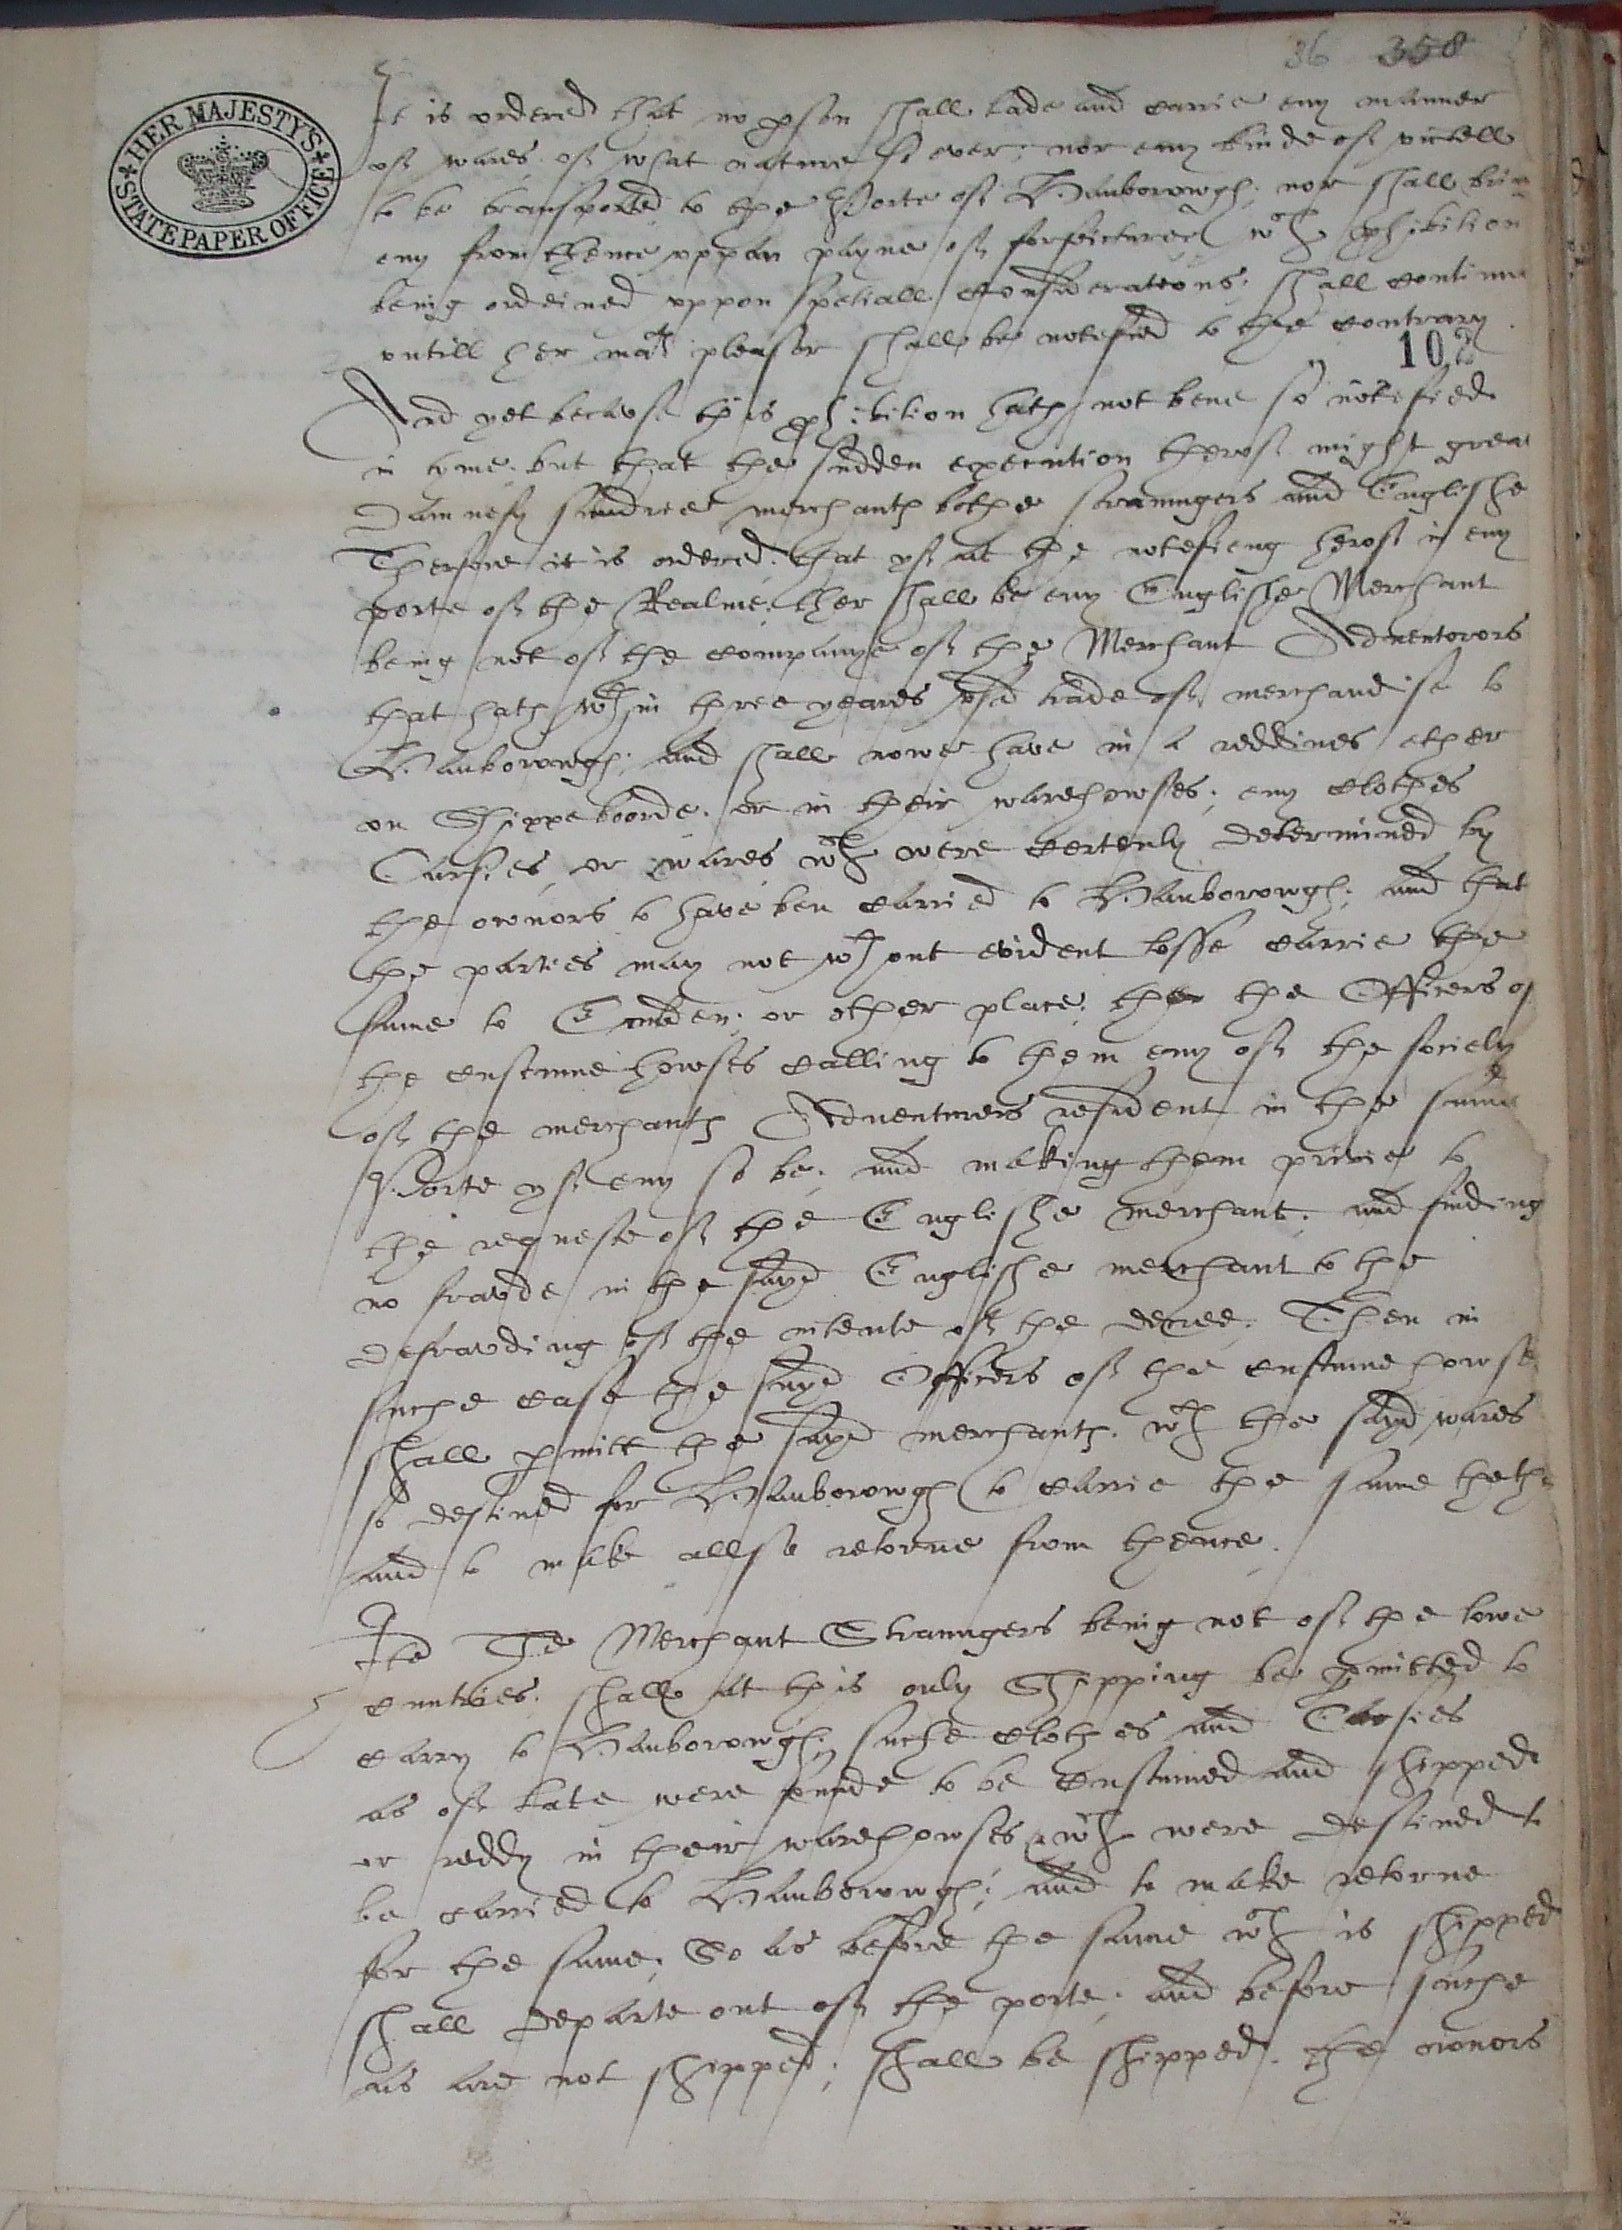 36 358
HER MAJESTY'S
STATE PAPER OFFICE
It is ordered that no pson shall lade and carrie eny manner
of wares of what nature so ever, nor eny kinde of victell
to be transported to the Porte of Hamborowgh, nor shall brin
eny from thence uppon payne of forfeicture, wch phibition
being ordeined uppon speciall considerations, shall continue
untill her mats pleasor shall be notefied to the contrary.
102
And yet because this phibition hath not bene so notefied
in tyme, but that the sudden execution therof might grea
damnefy sundree merchants bothe straungers and Englishe
Therfore it is ordered, that yf at the notefieng herof in eny
porte of the Realme, ther shall be eny Englishe Merchant
being not of the companye of the Merchant Adventorors
that hath wthin three yeares usd trade of merchandise to
Hamborowgh, and shall nowe have in a reddines ether
on Shippeboorde, or in their warehowses, eny clothes
Carsies, or wares wch were certenly determined by
the owners to have ben carried to Hamborowgh, and that
the parties may not wthout evident losse carrie the
same to Embden, or other place, ther the Officers of
the custume howses calling to them eny of the societie
of the merchants Adventurers resident in the same
Porte yf eny so be, and making them privie to
the requeste of the Englishe merchant, and finding
no fraude in the sayd Englishe merchant to the
defrauding of the intente of the decree, Then in
suche case the sayd Officers of the custume howse
shall pmitt the sayd merchants, wth the sayd wares
so destined for Hamborowgh to carrie the same thethe
and to make allso retorne from thence.
Ite The Merchant Straungers being not of the lowe
cuntries, shall at this only Shipping be pmitted to
carry to Hamborowgh, suche clothes and Carsies
as of late were founde to be custumed and shipped
or reddy in their warehowses, wch were destined to
be carried to Hamborowgh, and to make retorne
for the same, So as before the same wch is shipped
shall departe out of the porte, and before suche
as are not shipped, shall be shipped, the owners